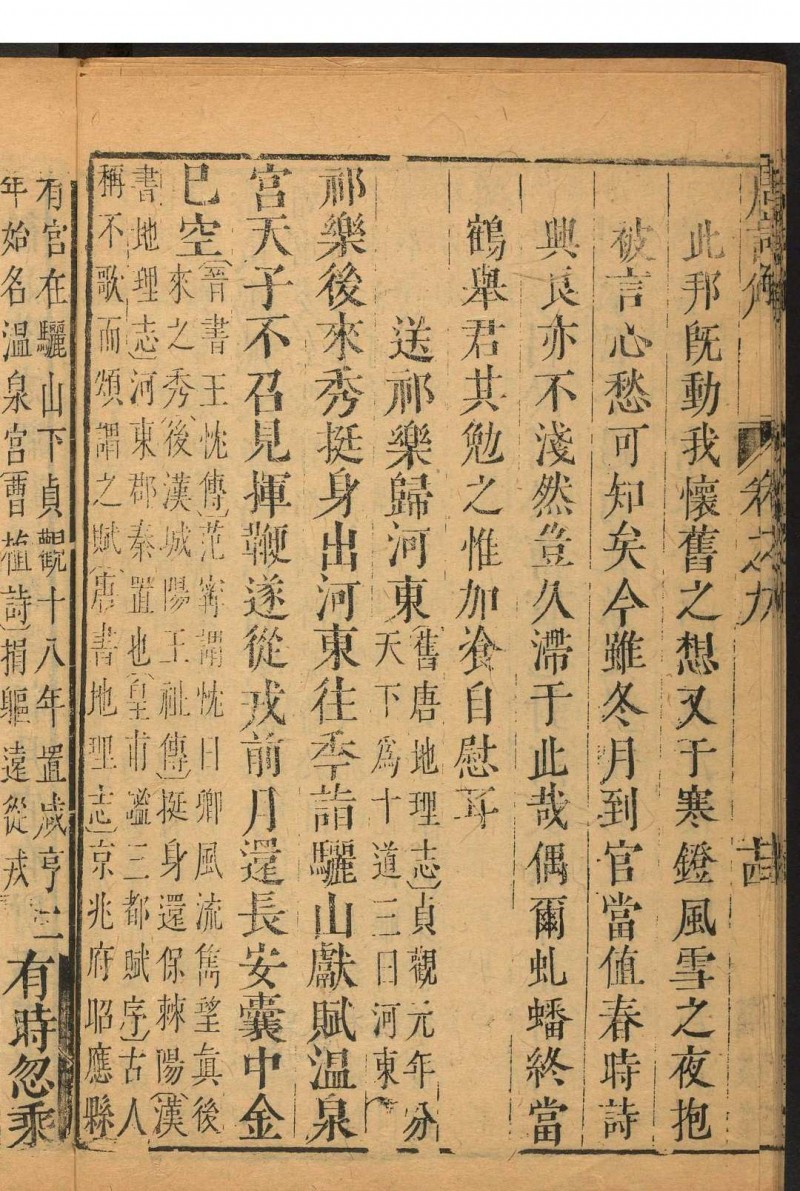 唐詩解 卷之九 十四
此邦既動我懷舊之想又于寒鐙風雪之夜抱
被言心愁可知矣今雖冬月到官當值春時詩
興良亦不淺然豈久滯于此哉偶爾虬蟠終當
鶴舉君其勉之惟加飡自慰耳
送祁樂歸河東
舊唐地理志貞觀元年分
天下爲十道三曰河東
祁樂後來秀挺身出河東往年詣驪山獻賦溫泉
宮天子不召見揮鞭遂從戎前月還長安囊中金
已空
晉書王忱傳范甯謂忱曰卿風流雋望真後
來之秀後漢城陽王祉傳挺身還保棘陽漢
書地理志河東郡秦置也皇甫謐三都賦序古人
稱不歌而頌謂之賦唐書地理志京兆府昭應縣
有宮在驪山下貞觀十八年置咸亨二
年始名溫泉宮曹植詩捐軀遠從戎
有時忽乘